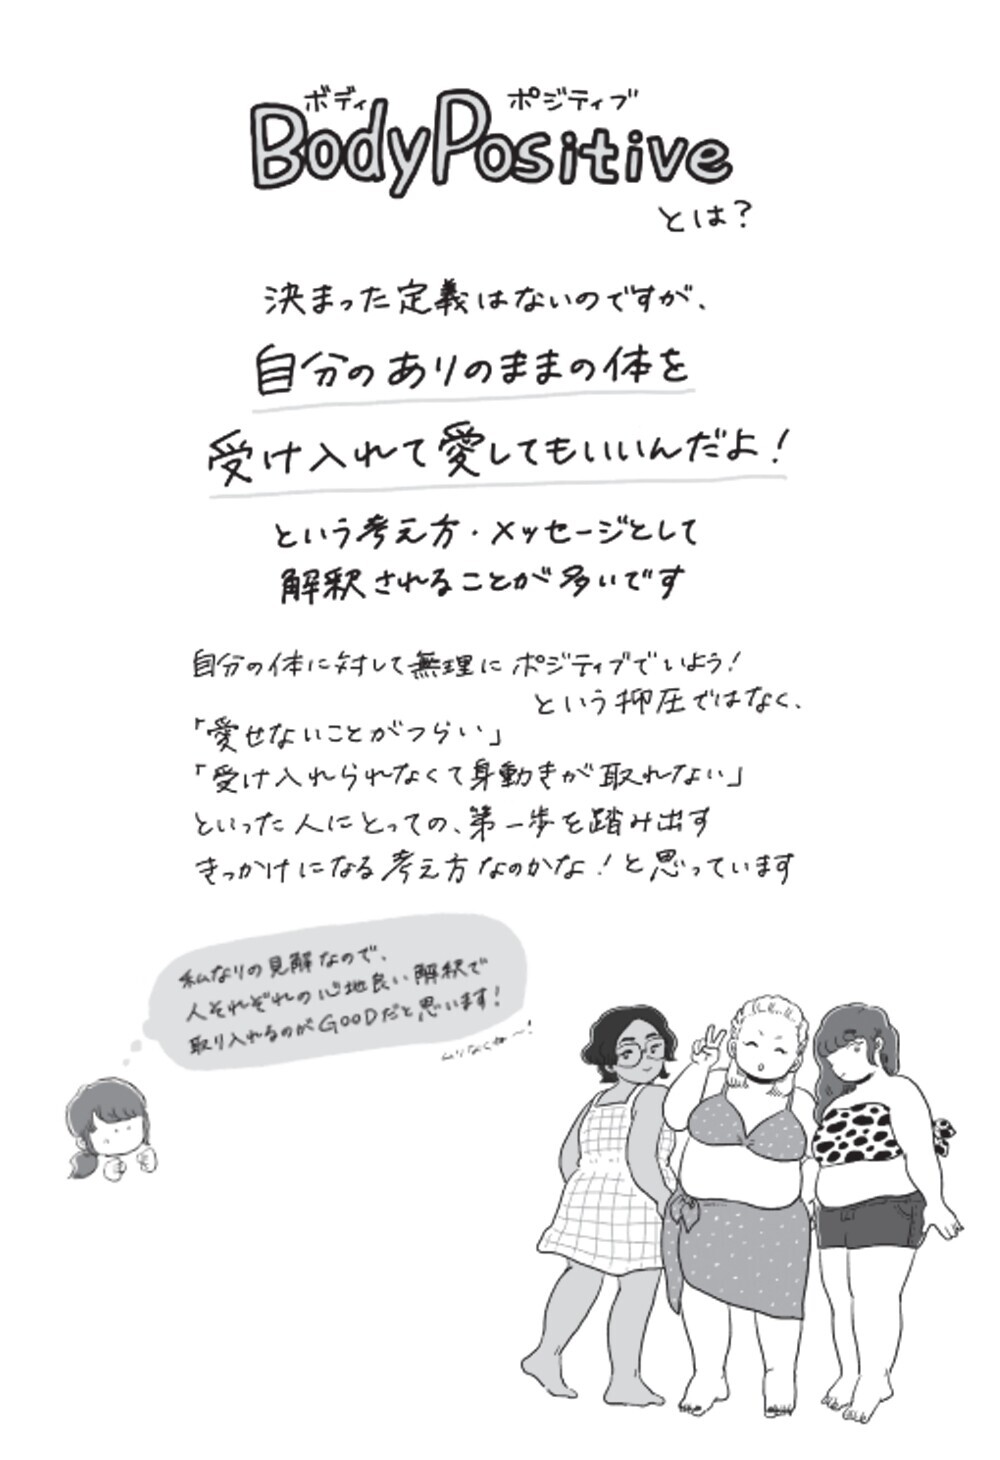 ボディ ポジティブ
BodyPositive
とは?
決まった定義はないのですが、
自分のありのままの体を
受け入れて愛してもいいんだよ!
という考え方・メッセージとして
解釈されることが多いです
自分の体に対して無理にポジティブでいよう!
という抑圧ではなく、
「愛せないことがつらい」
「受け入れられなくて身動きが取れない」
といった人にとっての、第一歩を踏み出す
きっかけになる考え方なのかな!と思っています
私なりの見解なので、
人それぞれの心地良い解釈で
取り入れるのがGOODだと思います!
ムリなくね〜!